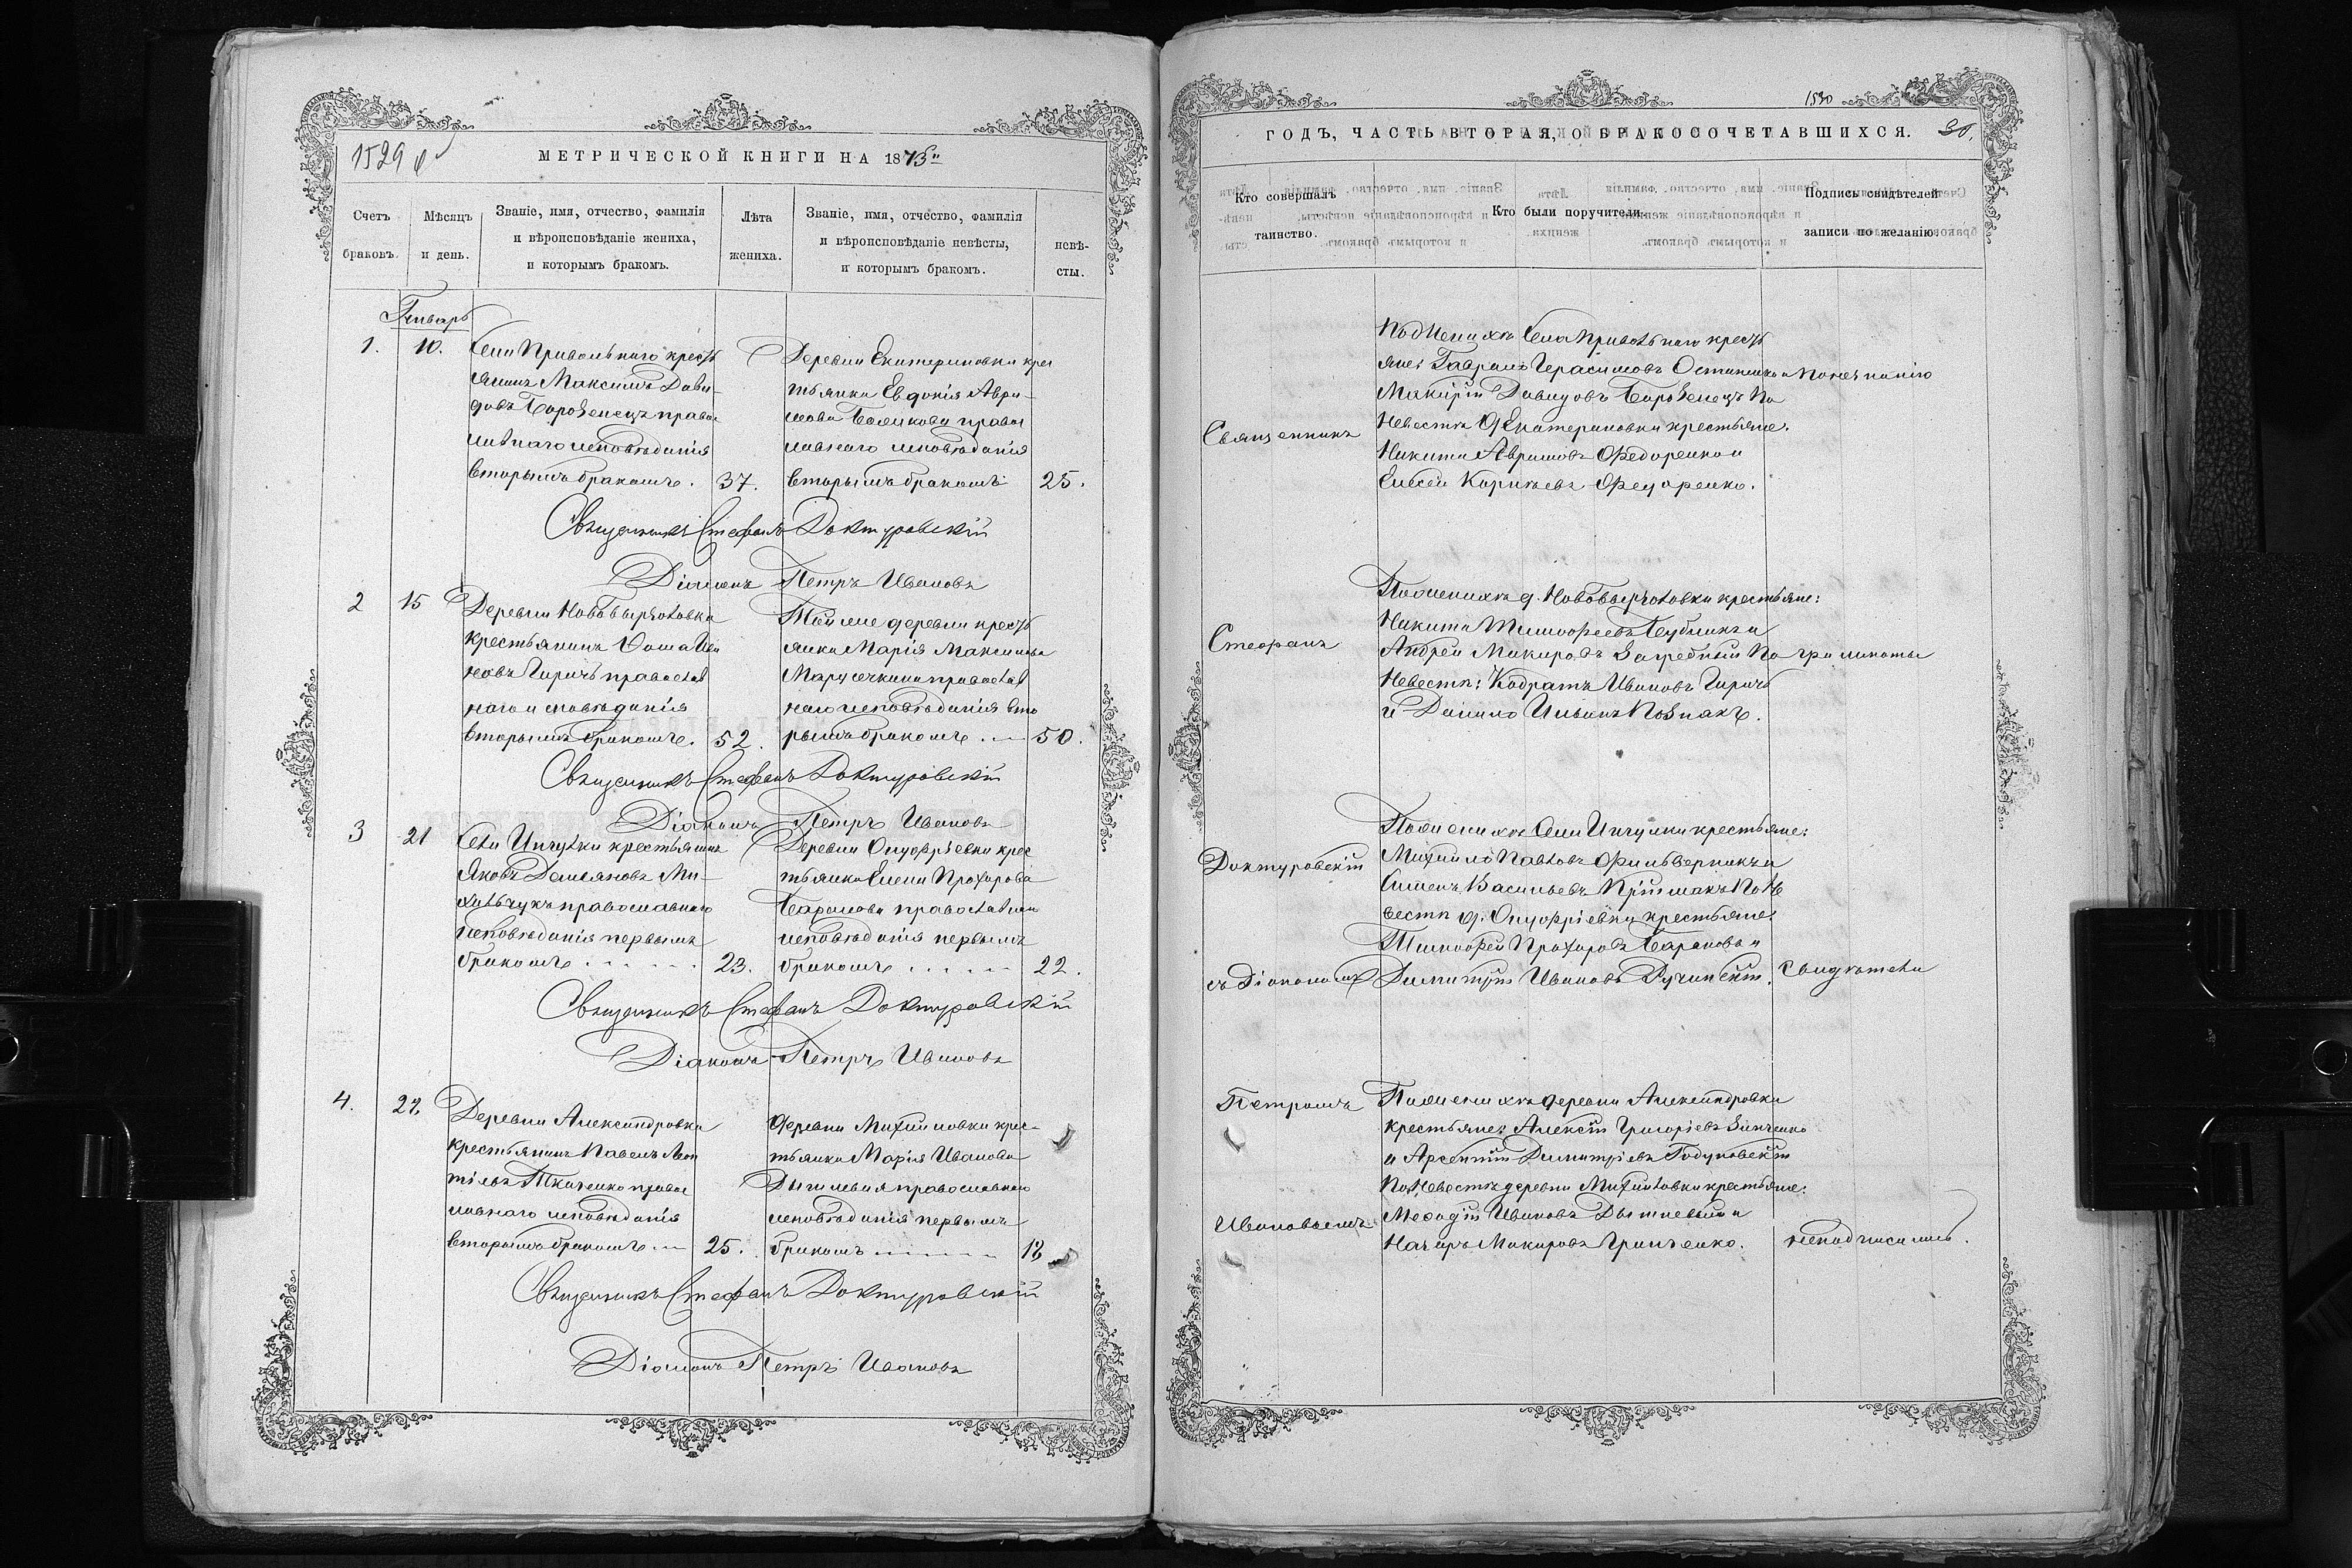 1529
МЕТРИЧЕСКОЙ КНИГИ НА 1875
Счетъ браковъ.
Мѣсяцъ и день.
Званіе, имя, отчество, фамилія
и вѣроисповѣданіе жениха,
и которымъ бракомъ.
Лѣта
жениха.
Званіе, имя, отчество, фамилія
и вѣроисповѣданіе невѣсты,
и которымъ бракомъ.
невѣ-
сты.
Январь
1. 10.
Села Привольнаго кресть
янинъ Максимъ Дави-
довъ Боровенецъ правос
лавнаго исповѣданія
вторымъ бракомъ. 37.
Деревни Екатериновки крес
тьянка Евдокія Авра-
мова православнаго исповѣданія
вторымъ бракомъ 25.
Священникъ Стефанъ Доктуровскій
Діаконъ Петръ Ивановъ
2 15
Деревни
крестьянинъ Ѳома
ковъ Гиричъ православ
наго исповѣданія
вторымъ бракомъ. 52.
Той же деревни кресть
янка Марія Максимова
Марусечкина православ
наго исповѣданія вто
рымъ бракомъ 50.
Священникъ Стефанъ Доктуровскій
Діаконъ Петръ Ивановъ
3 21
Села Ингулки крестьянинъ
Яковъ Даміановъ Ми-
хальчукъ православнаго
исповѣданія первымъ
бракомъ 23.
Деревни Онуфріевки крес
тьянка Елена Прохорова
Баранова православнаго
исповѣданія первымъ
бракомъ 22.
Священникъ Стефанъ Доктуровскій
Діаконъ Петръ Ивановъ
4. 22
Деревни Александровки
крестьянинъ Павелъ Леон
тіевъ Ткаченко правос
лавнаго исповѣданія
вторымъ бракомъ 25.
деревни Михайловки крес-
тьянка Марія Иванова
православнаго
исповѣданія первымъ
бракомъ 18
Священникъ Стефанъ Доктуровскій
Діаконъ Петръ Ивановъ
1530
ГОДЪ, ЧАСТЬ ВТОРАЯ, О БРАКОСОЧЕТАВШИХСЯ. 30.
Кто совершалъ
таинство.
Кто были поручители.
Подпись свидѣтелей
записи по желанію.
Священникъ
Стефанъ
Доктуровскій
съ Діакономъ
Петромъ
Ивановымъ
По Женихѣ Села Привольнаго кресть
яне: Гавріилъ Герасимовъ Остапенко и
Макарій Давидовъ Боровенецъ По
Невѣстѣ д. Екатериновки крестьяне:
Никита Аврамовъ Федоренко и
Елисей Корнѣевъ Федоренко.
По женихѣ д. крестьяне:
Никита Тимофеевъ Бубликъ и
Андрей Макаровъ Загребный По
Невестѣ: Кодратъ Ивановъ Гиричъ
и Данило Ильинъ Познахъ.
По женихѣ Села Ингулки крестьяне:
Михайло Павловъ и
Василіевъ По Не
вестѣ д. Онуфріевки крестьяне:
Тимофей Прохоровъ Барановъ и
Димитрій Ивановъ Ручинскій.
По женихѣ деревни Александровки
крестьяне: Алексій Григоріевъ Зинченко
и Арсентій Димитріевъ Годуновскій
По Невестѣ деревни Михайловки крестьяне:
Меѳодій Ивановъ
Макаровъ Гринченко.
По незнанію
грамматы
Свидѣтели
неподписались.